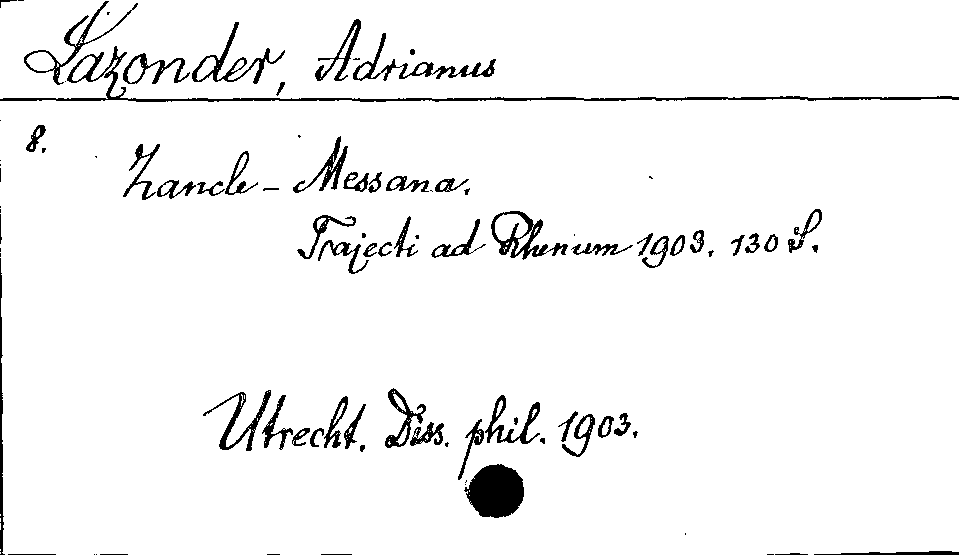 Lazonder, Adrianus
8.
Zancle - Messana.
Trajecti ad Rhenum 1903. 130 S.
Utrecht. Diss. phil. 1903.